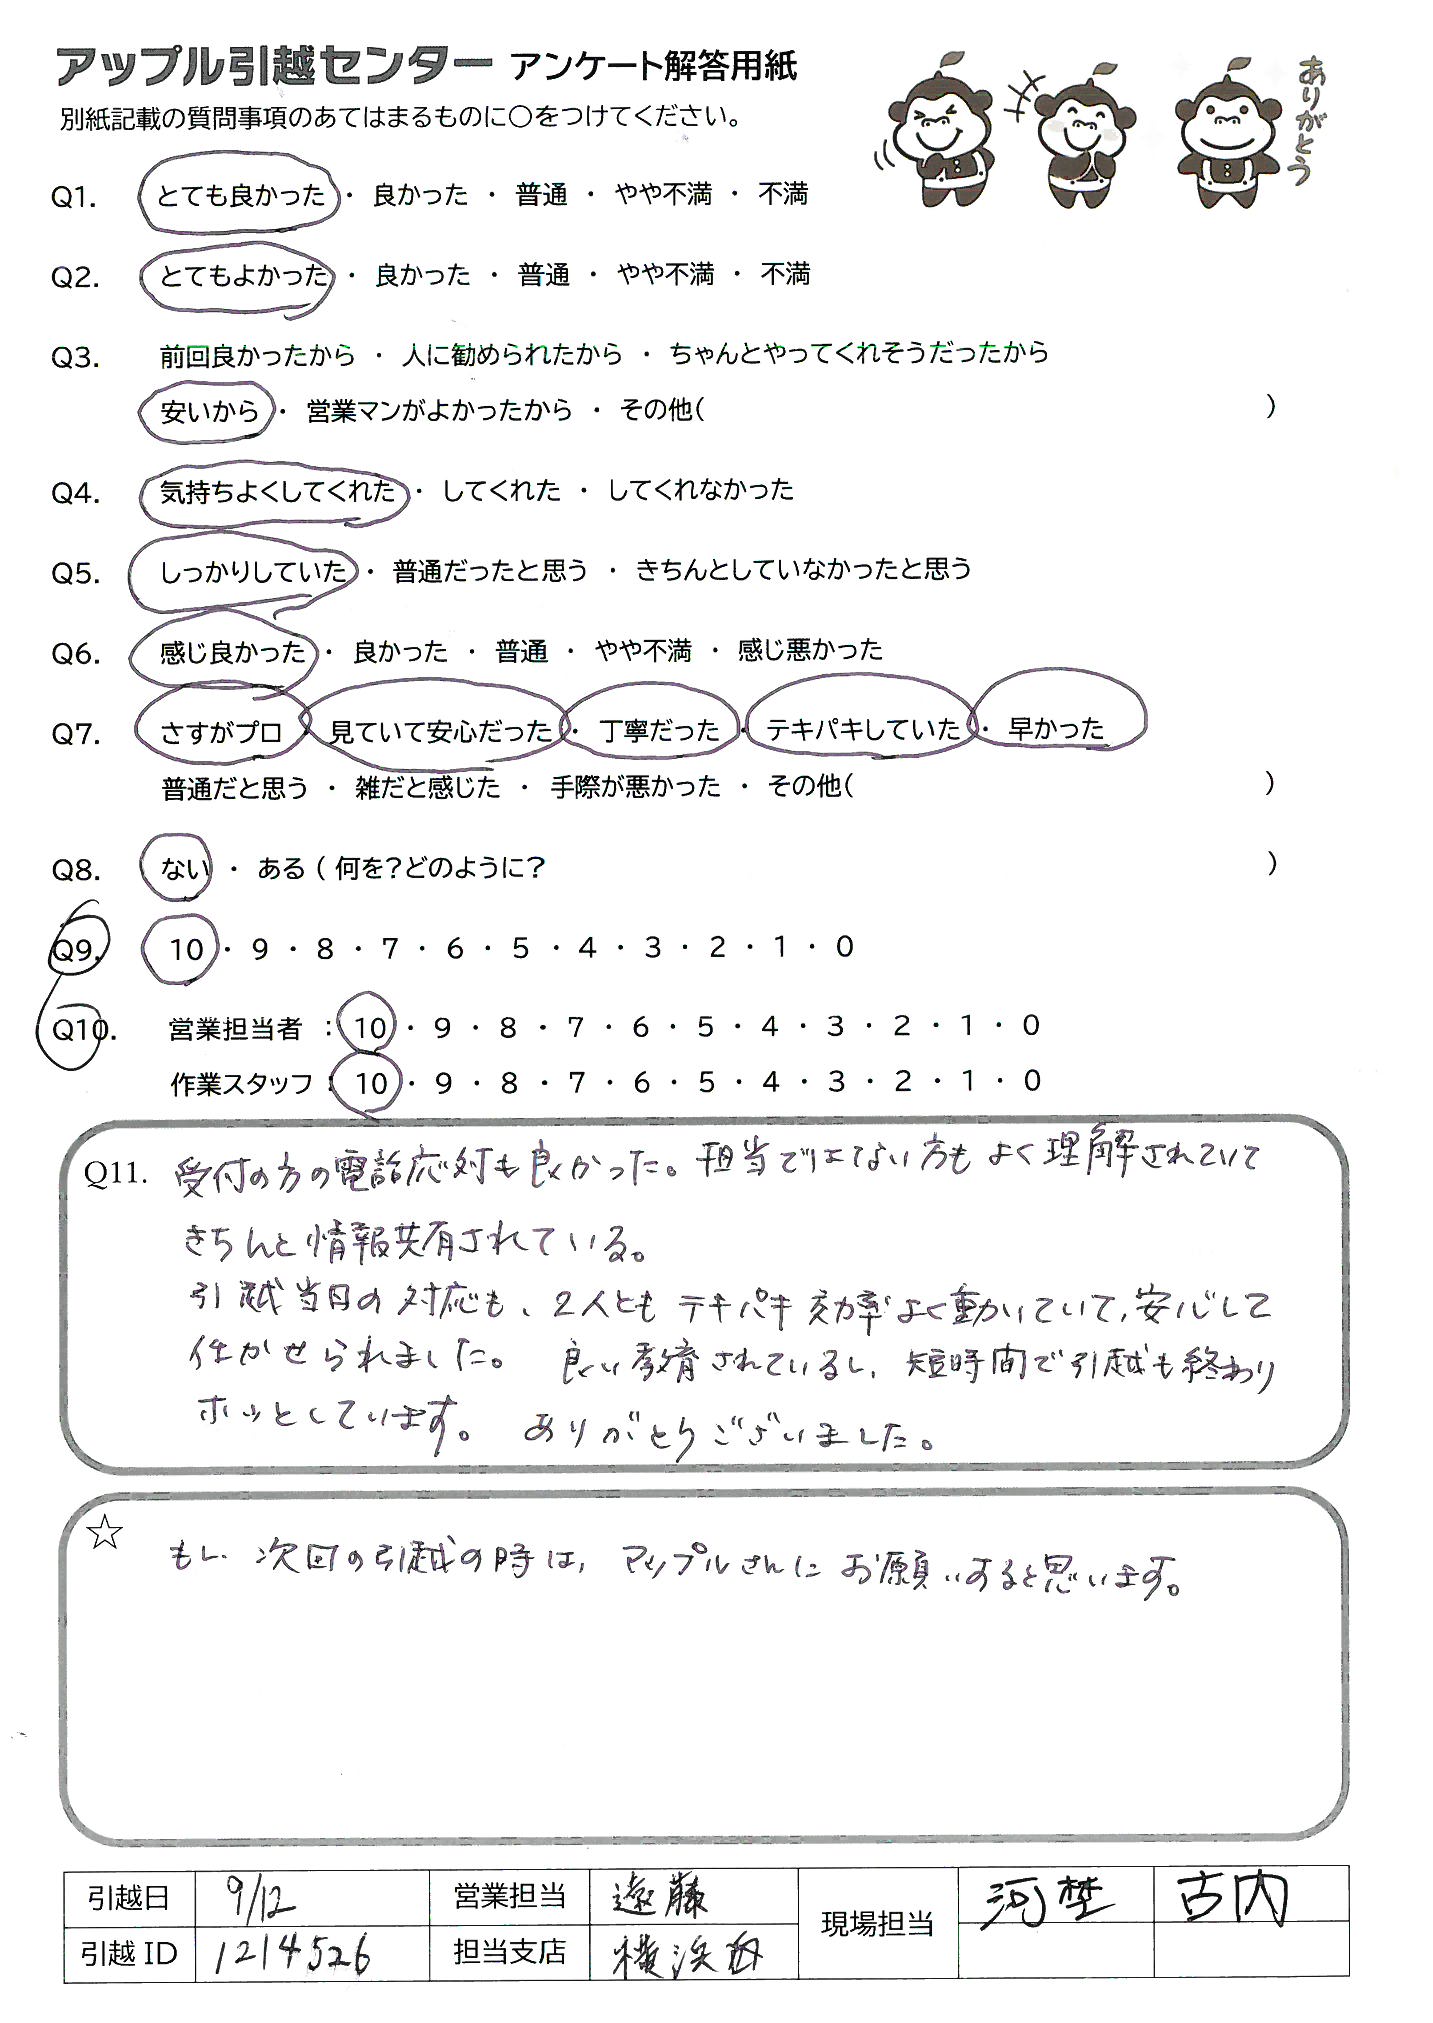 アップル引越センター アンケート解答用紙
別紙記載の質問事項のあてはまるものに〇をつけてください。
ありがとう
Q1. とても良かった ・ 良かった ・ 普通 ・ やや不満 ・ 不満
Q2. とてもよかった ・ 良かった ・ 普通 ・ やや不満 ・ 不満
Q3. 前回良かったから ・ 人に勧められたから ・ ちゃんとやってくれそうだったから
安いから ・ 営業マンがよかったから ・ その他( )
Q4. 気持ちよくしてくれた ・ してくれた ・ してくれなかった
Q5. しっかりしていた ・ 普通だったと思う ・ きちんとしていなかったと思う
Q6. 感じ良かった ・ 良かった ・ 普通 ・ やや不満 ・ 感じ悪かった
Q7. さすがプロ ・ 見ていて安心だった ・ 丁寧だった ・ テキパキしていた ・ 早かった
普通だと思う ・ 雑だと感じた ・ 手際が悪かった ・ その他( )
Q8. ない ・ ある ( 何を?どのように? )
Q9. 10 ・ 9 ・ 8 ・ 7 ・ 6 ・ 5 ・ 4 ・ 3 ・ 2 ・ 1 ・ 0
Q10. 営業担当者 : 10 ・ 9 ・ 8 ・ 7 ・ 6 ・ 5 ・ 4 ・ 3 ・ 2 ・ 1 ・ 0
作業スタッフ : 10 ・ 9 ・ 8 ・ 7 ・ 6 ・ 5 ・ 4 ・ 3 ・ 2 ・ 1 ・ 0
Q11. 受付の方の電話応対も良かった。担当ではない方もよく理解されていて
きちんと情報共有されている。
引越当日の対応も、2人ともテキパキ効率よく動いていて、安心して
任かせられました。 良い教育されているし、短時間で引越も終わり
ホッとしています。 ありがとうございました。
☆ もし、次回の引越の時は、アップルさんにお願いすると思います。
引越日 9/12 営業担当 遠藤 現場担当 河埜 古内
引越ID 1214526 担当支店 横浜